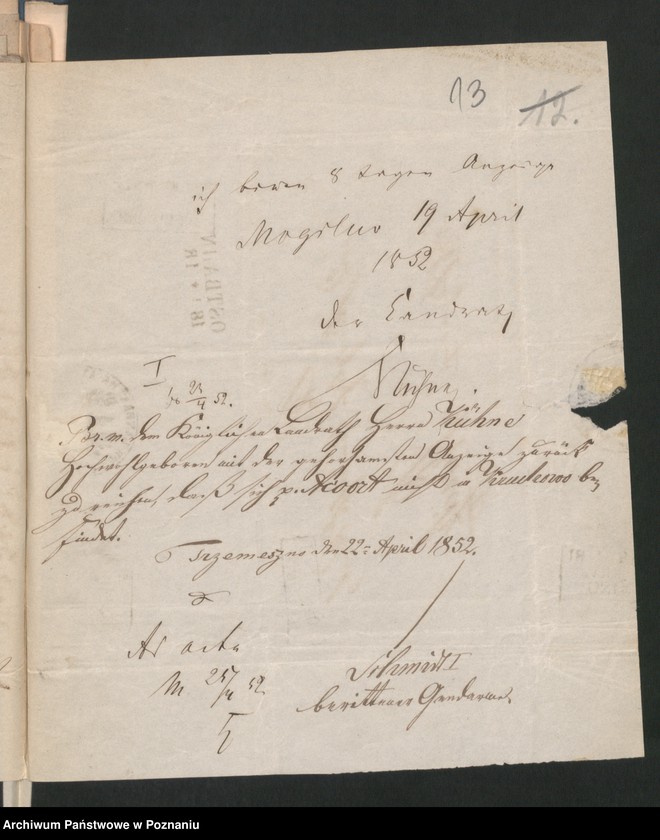 13 12.
ich binnen 8 Tagen Anzeige
Mogilno 19 April
1852
Der Landrath
Kühne
I
23/4 52.
Br. m. dem Königlichen Landrath Herrn Kühne
Hochwohlgeboren mit der gehorsamsten Anzeige zurück
zu reichen, daß sich p. nicht in Kruchowo be
findet.
Trzemeszno den 22ten April 1852.
Ad acta
M 25/4 52
Schmidt I
berittener Gendarme.
OSTBAHN
Archiwum Państwowe w Poznaniu